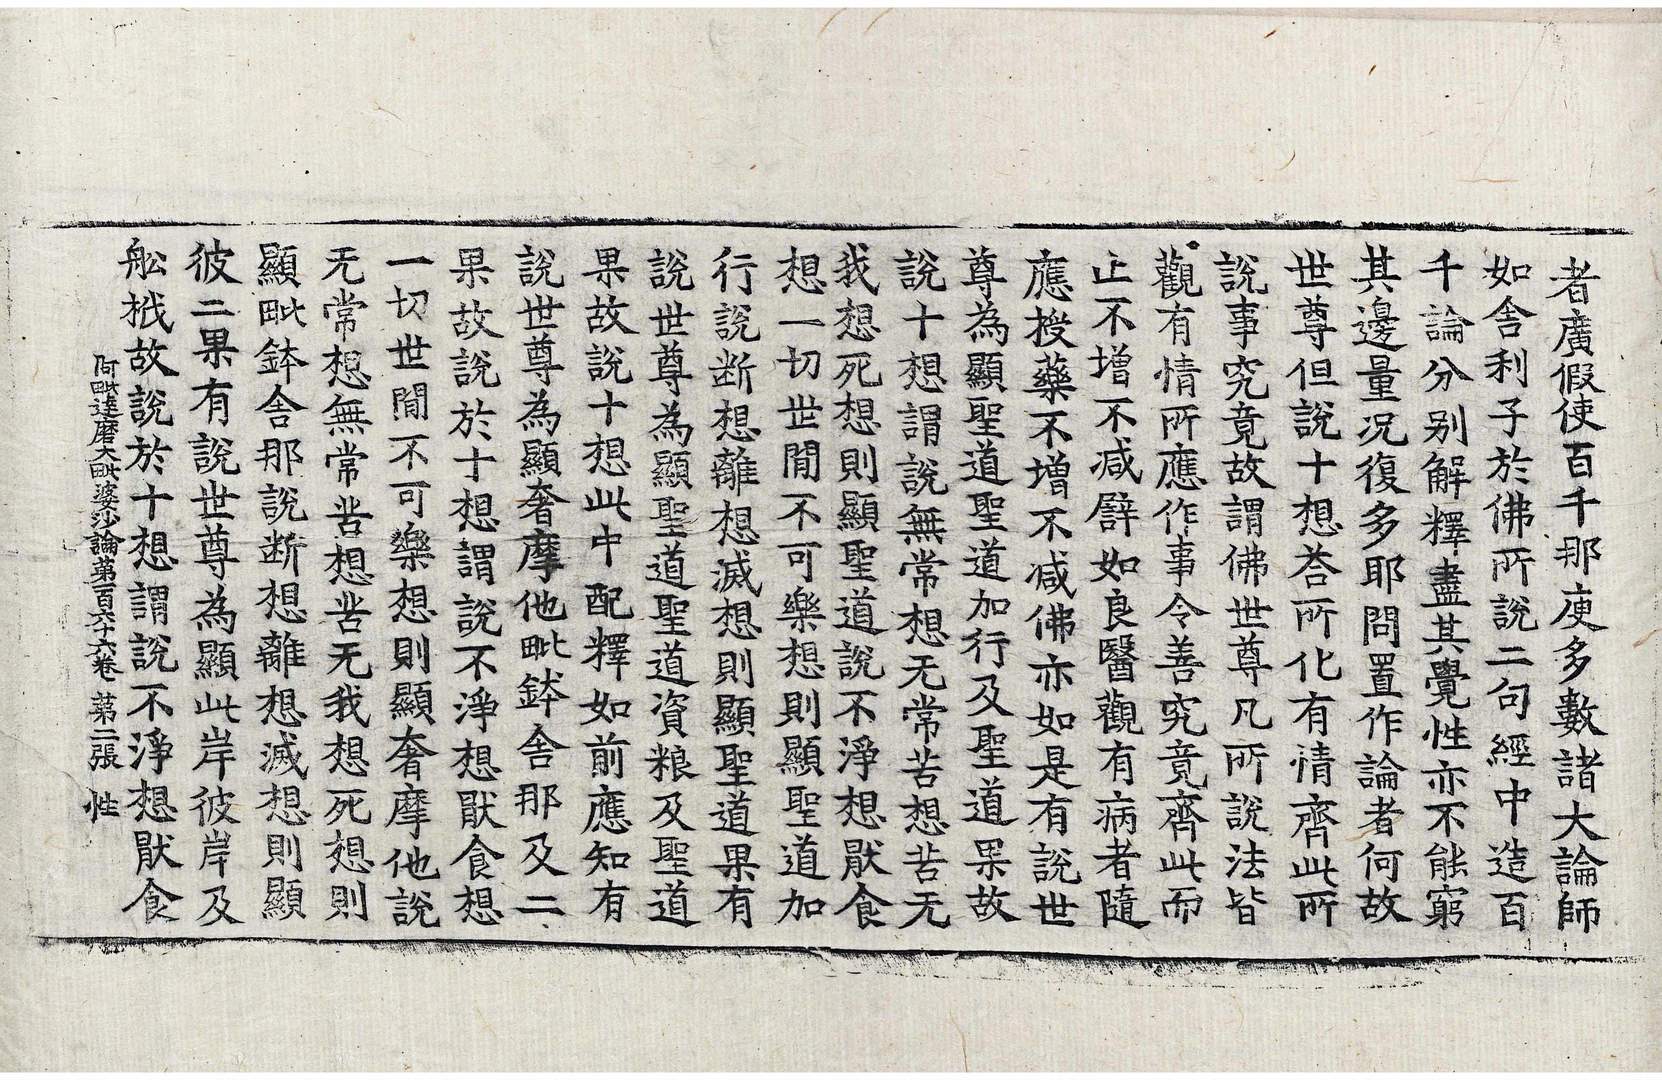 者廣假使百千那庾多數諸大論師
如舍利子於佛所說二句經中造百
千論分别解釋盡其覺性亦不能窮
其邊量況復多耶問置作論者何故
世尊但說十想荅所化有情齊此所
說事究竟故謂佛世尊凡所說法皆
觀有情所應作事令善究竟齊此而
止不增不減譬如良醫觀有病者隨
應授藥不增不減佛亦如是有說世
尊為顯聖道聖道加行及聖道果故
說十想謂說無常想无常苦想苦无
我想死想則顯聖道說不淨想猒食
想一切世閒不可樂想則顯聖道加
行說断想離想滅想則顯聖道果有
說世尊為顯聖道聖道資粮及聖道
果故說十想此中配釋如前應知有
說世尊為顯奢摩他毗鉢舍那及二
果故說於十想謂說不淨想猒食想
一切世閒不可樂想則顯奢摩他說
无常想無常苦想苦无我想死想則
顯毗鉢舍那說断想離想滅想則顯
彼二果有說世尊為顯此岸彼岸及
舩栰故說於十想謂說不淨想猒食
阿毗達磨大毗婆沙論第一百六十六卷 第二張 性